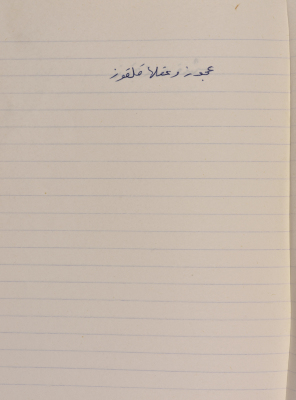 عجوز وعقلها قلقوز